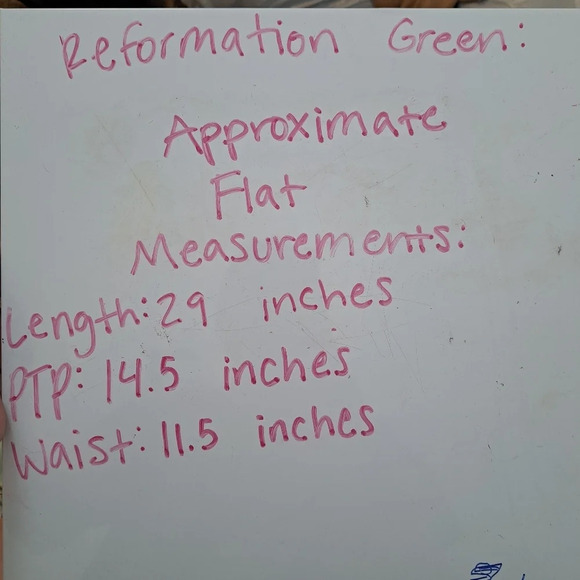 Reformation Green:
Approximate
Flat
Measurements:
Length: 29 inches
PTP: 14.5 inches
Waist: 11.5 inches